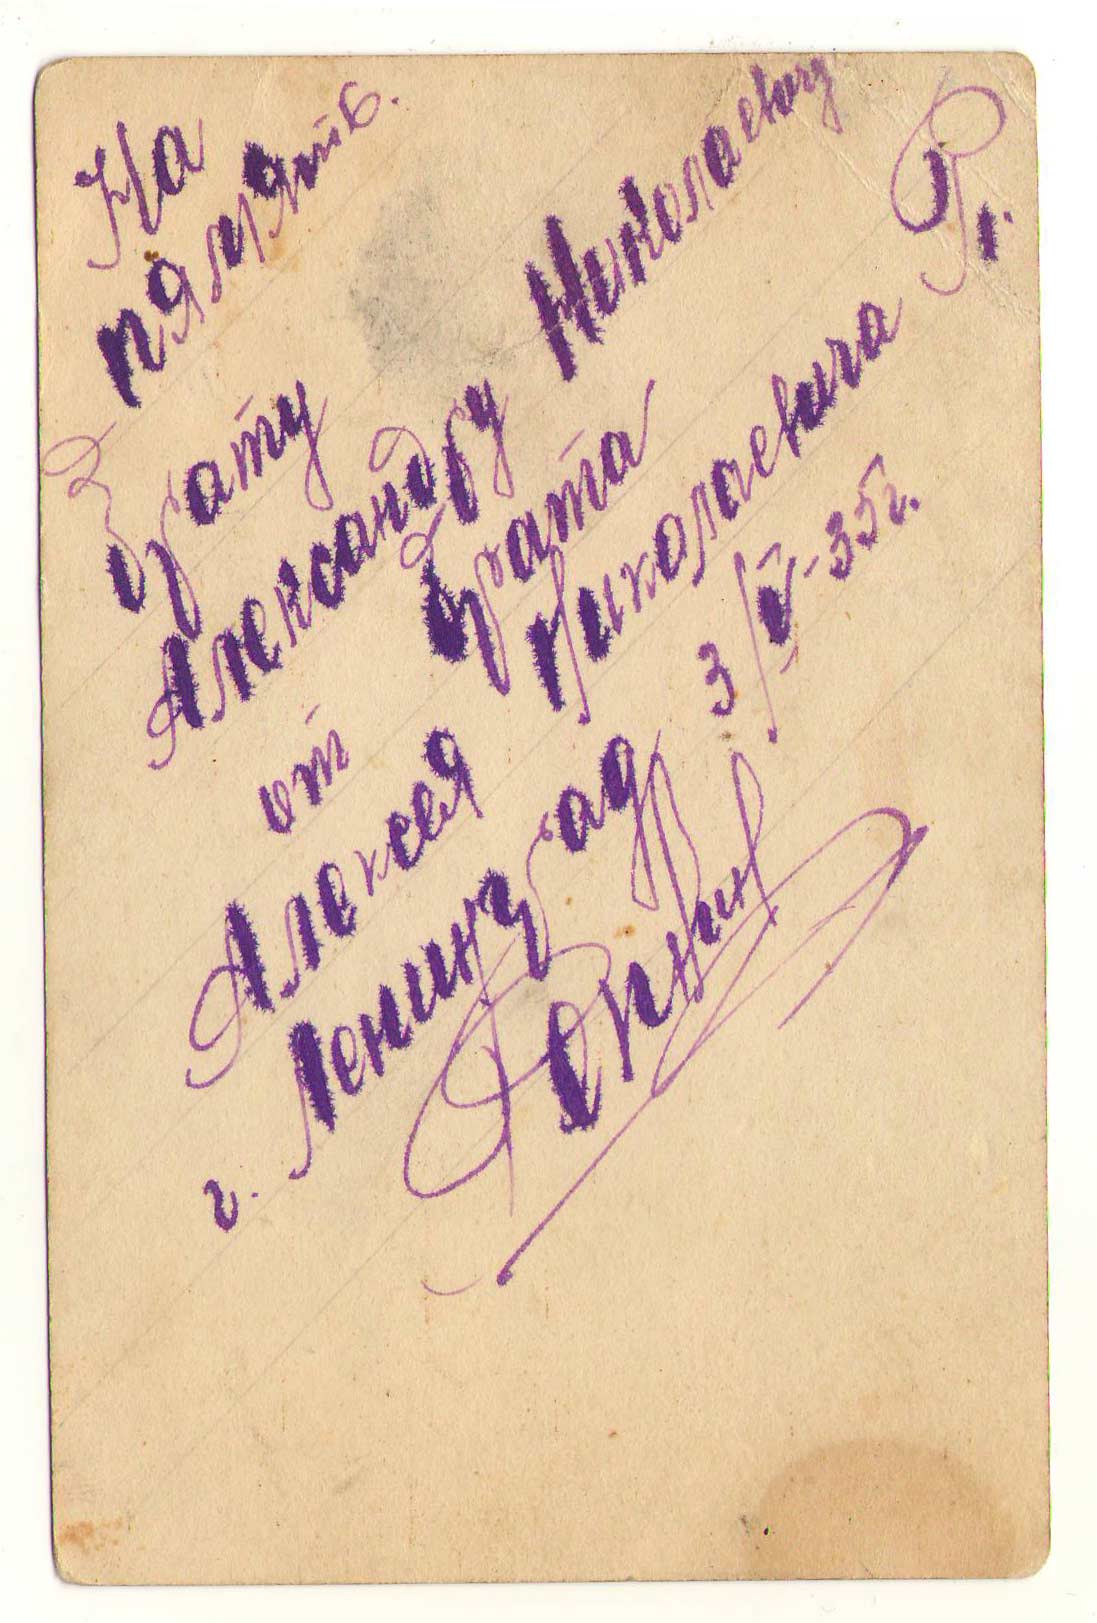 На
пямять.
Брату
Александру Николаевичу
от брата
Алексея Николаевича Р.
г. Ленинград 3/V-35г.